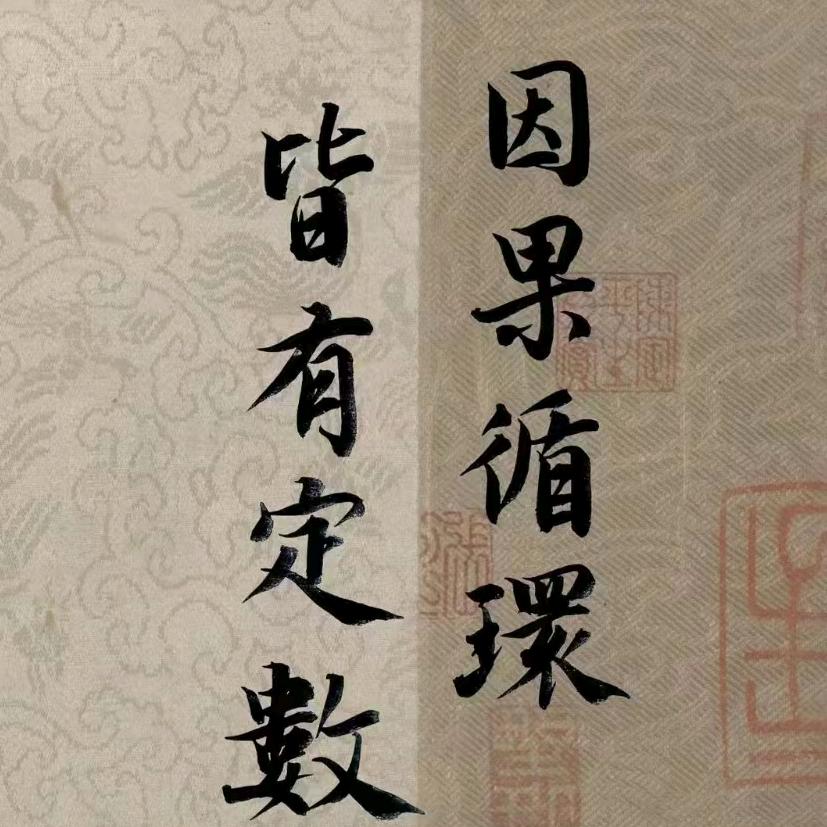 因果循環
皆有定數